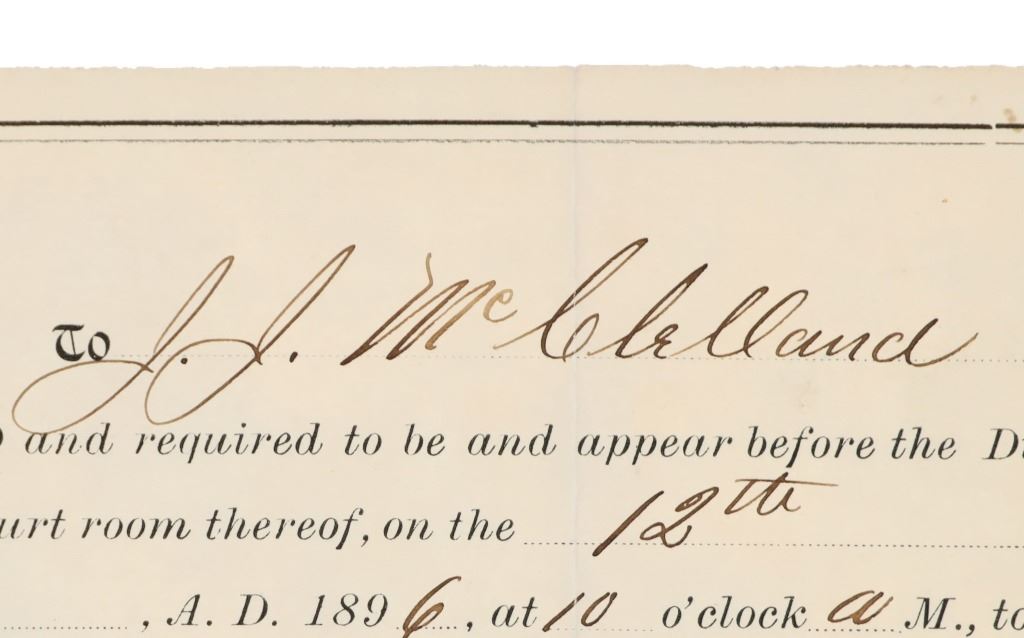 To J. J. McClelland
and required to be and appear before the
room thereof, on the 12th
, A. D. 1896, at 10 o'clock a M., to